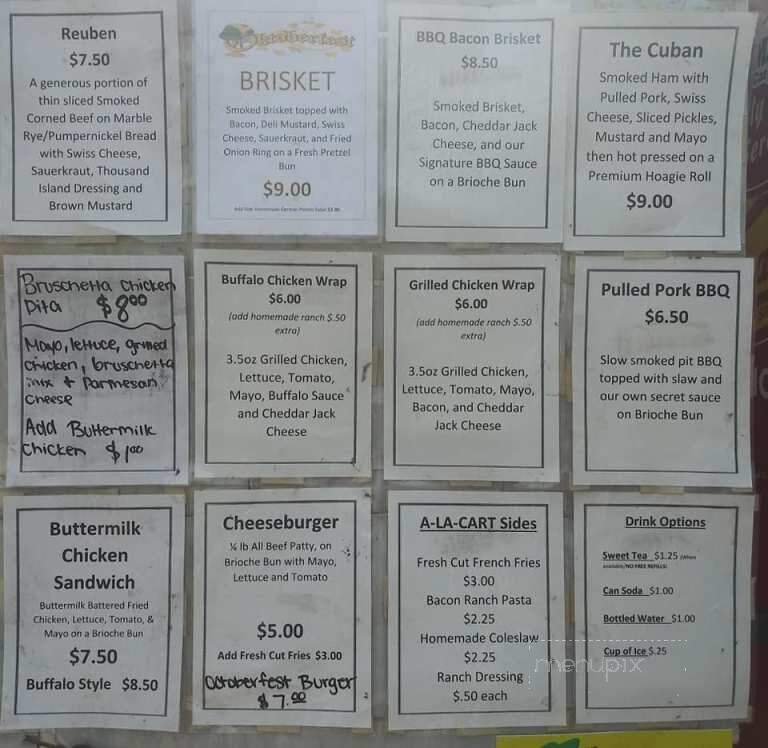 Reuben
$7.50
A generous portion of
thin sliced Smoked
Corned Beef on Marble
Rye/Pumpernickel Bread
with Swiss Cheese,
Sauerkraut, Thousand
Island Dressing and
Brown Mustard
Oktoberfest
BRISKET
Smoked Brisket topped with
Bacon, Deli Mustard, Swiss
Cheese, Sauerkraut, and Fried
Onion Ring on a Fresh Pretzel
Bun
$9.00
BBQ Bacon Brisket
$8.50
Smoked Brisket,
Bacon, Cheddar Jack
Cheese, and our
Signature BBQ Sauce
on a Brioche Bun
The Cuban
Smoked Ham with
Pulled Pork, Swiss
Cheese, Sliced Pickles,
Mustard and Mayo
then hot pressed on a
Premium Hoagie Roll
$9.00
Bruschetta Chicken
Pita $8.00
Mayo, lettuce, grilled
chicken, bruschetta
mix + Parmesan
cheese
Add Buttermilk
Chicken $1.00
Buffalo Chicken Wrap
$6.00
(add homemade ranch $.50
extra)
3.5oz Grilled Chicken,
Lettuce, Tomato,
Mayo, Buffalo Sauce
and Cheddar Jack
Cheese
Grilled Chicken Wrap
$6.00
(add homemade ranch $.50
extra)
3.5oz Grilled Chicken,
Lettuce, Tomato, Mayo,
Bacon, and Cheddar
Jack Cheese
Pulled Pork BBQ
$6.50
Slow smoked pit BBQ
topped with slaw and
our own secret sauce
on Brioche Bun
Buttermilk
Chicken
Sandwich
Buttermilk Battered Fried
Chicken, Lettuce, Tomato, &
Mayo on a Brioche Bun
$7.50
Buffalo Style $8.50
Cheeseburger
¼ lb All Beef Patty, on
Brioche Bun with Mayo,
Lettuce and Tomato
$5.00
Add Fresh Cut Fries $3.00
Octoberfest Burger
$7.00
A-LA-CART Sides
Fresh Cut French Fries
$3.00
Bacon Ranch Pasta
$2.25
Homemade Coleslaw
$2.25
Ranch Dressing
$.50 each
Drink Options
Sweet Tea $1.25 (When
available/NO FREE REFILLS)
Can Soda $1.00
Bottled Water $1.00
Cup of Ice $.25
menupix